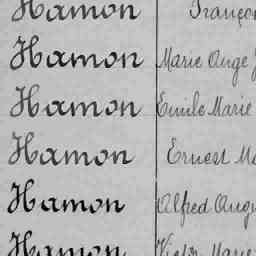 Hamon
Hamon Marie Ange
Hamon Emile Marie
Hamon Ernest
Hamon Alfred
Hamon Victor Marie